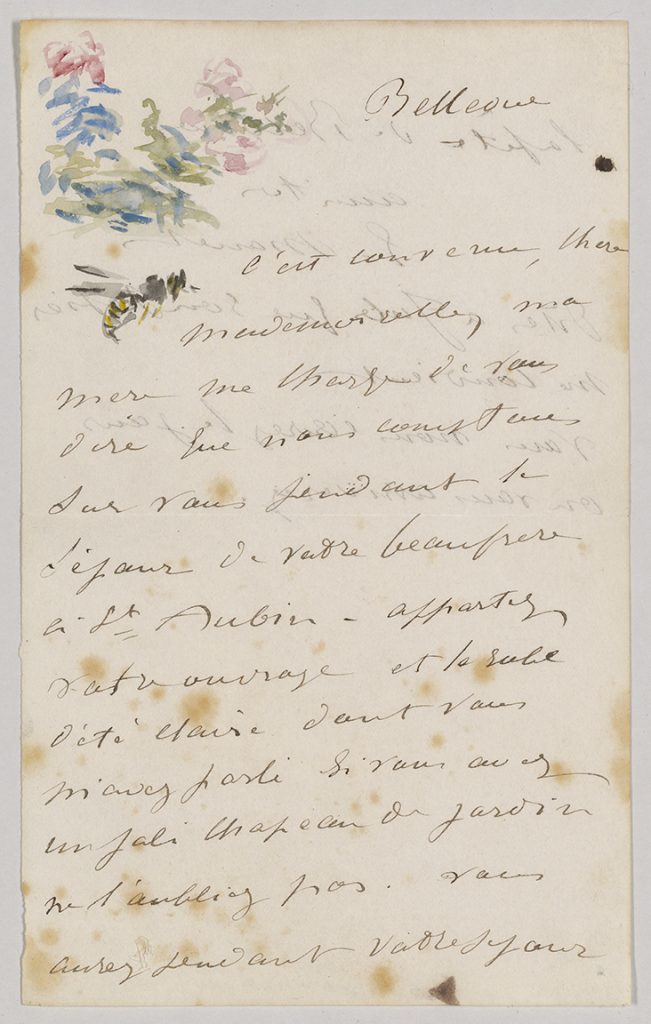 Bellevue
c'est convenu, chere
mademoiselle, ma
mere me charge de vous
dire que nous comptons
sur vous pendant le
séjour de votre beaufrere
à St Aubin - apportez
votre ouvrage et la robe
d'été claire dont vous
m'avez parlé si vous avez
un joli chapeau de jardin
ne l'oubliez pas. vous
aurez pendant votre séjour